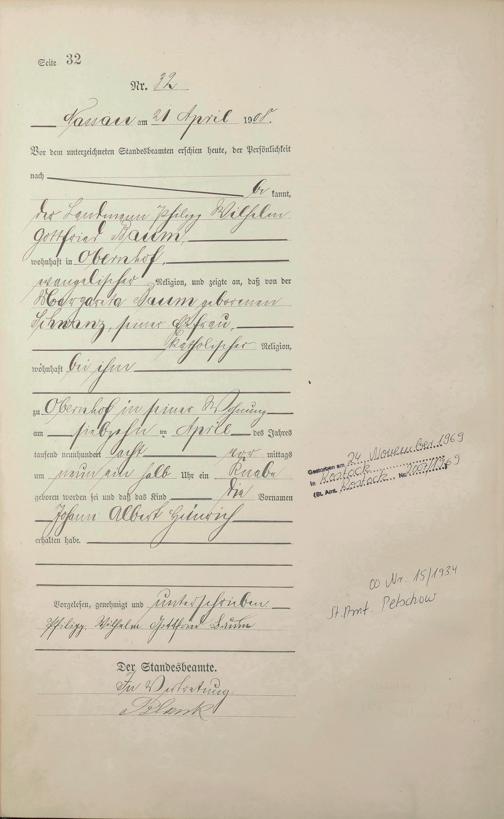 Seite 32
Nr. 32
Nassau am 21 April 1908.
Vor dem unterzeichneten Standesbeamten erschien heute, der Persönlichkeit
nach
be kannt,
der Landmann Philipp Wilhelm
Gottfried Baum,
wohnhaft in Obernhof,
evangelischer Religion, und zeigte an, daß von der
Margareta Baum geborenen
Schwanz, seiner Ehefrau,
katholischer Religion,
wohnhaft bei ihm
zu Obernhof in seiner Wohnung
am siebzehn ten April des Jahres
tausend neunhundert acht vor mittags
um neun ein halb Uhr ein Knabe
geboren worden sei und daß das Kind die Vornamen
Johann Albert Heinrich
erhalten habe.
Vorgelesen, genehmigt und unterschrieben
Philipp Wilhelm Gottfried Baum
Der Standesbeamte.
In Vertretung
Gestorben am 24. November 1969
in Rostock
(St. Amt. Rostock Nr.
∞ Nr. 15/1934
St. Amt Petschow